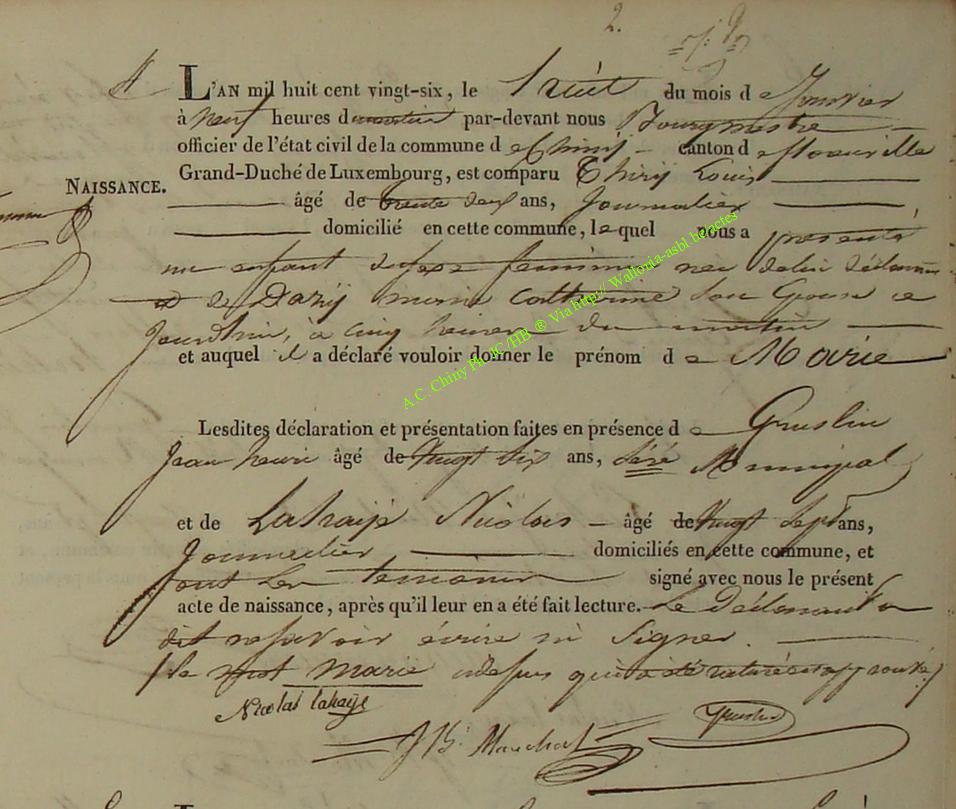 2.
L'AN mil huit cent vingt-six, le huit du mois de Janvier
à neuf heures du matin par-devant nous Bourgmestre
officier de l'état civil de la commune de Chiny canton de florenville
NAISSANCE. Grand-Duché de Luxembourg, est comparu Thiry Louis
âgé de trente deux ans, Journalier
domicilié en cette commune, lequel nous a présenté
un enfant de sexe feminin née de lui déclarant
et de Dazij marie Catherine son Epouse ce
Jourdhui, à cinq heures du matin
et auquel il a déclaré vouloir donner le prénom de Marie
Lesdites déclaration et présentation faites en présence de Gruslin
Jean henri âgé de vingt six ans, Municipal
et de Lahaije Nicolas âgé de vingt sept ans,
Journalier, domiciliés en cette commune, et
ont les temoins signé avec nous le présent
acte de naissance, après qu'il leur en a été fait lecture. Le Déclarant a
dit ne savoir écrire ni signer.
(le mot marie approuvé)
Nicolas lahaije
Gruslin
J B Marchal
A.C. Chiny Ph JC/HB ® Via http:// Wallonia-asbl.be/actes